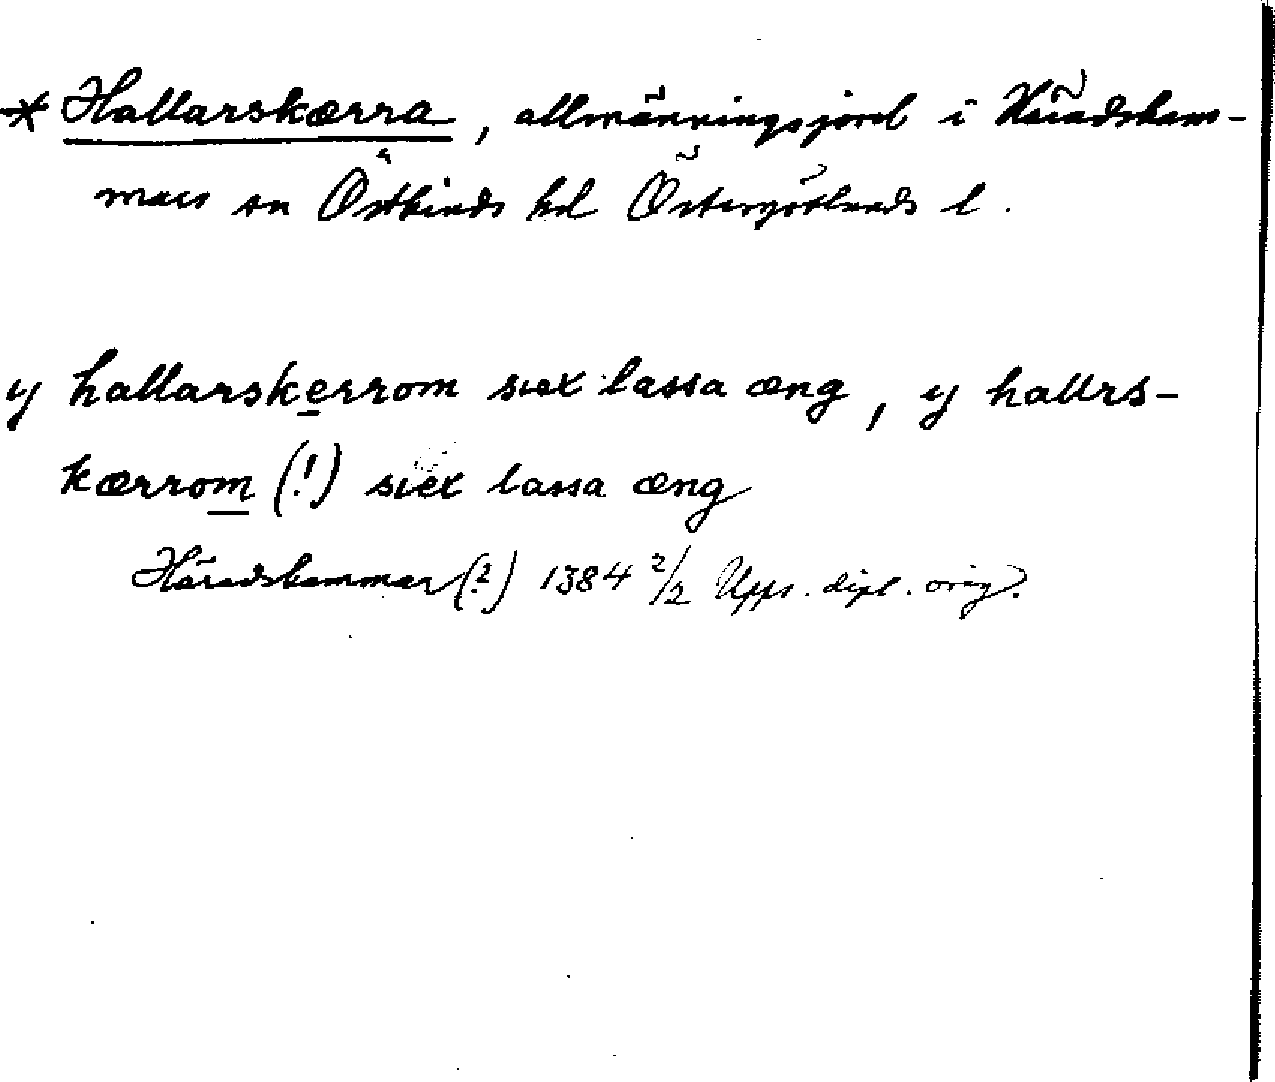 * Hallarskærra, allmänningsjord i Häradsham-
mars sn Östkinds hd Östergötlands l.
y hallarskerrom siæx lassa æng, y hallrs-
kærrom (!) siex lassa æng
Häradshammar (?) 1384 2/2 Upps. dipl. orig.